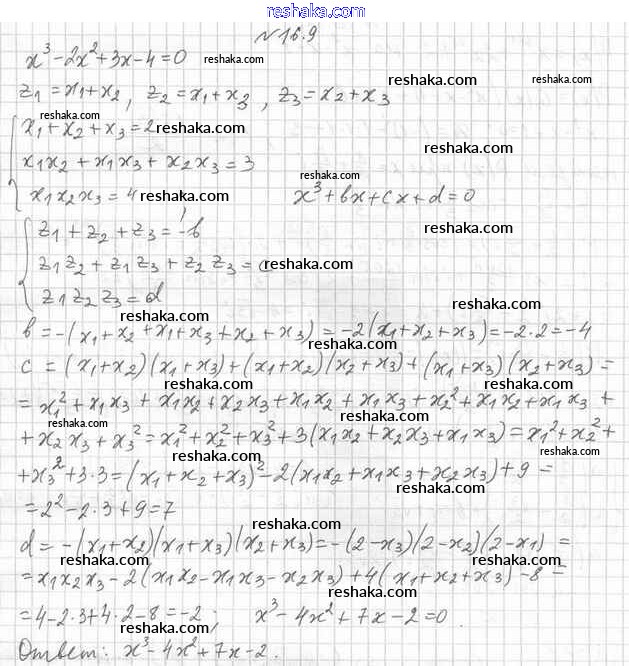 reshaka.com
№16.9
x³-2x²+3x-4=0 reshaka.com
z₁=x₁+x₂, z₂=x₁+x₃, z₃=x₂+x₃ reshaka.com reshaka.com
reshaka.com
x₁+x₂+x₃=2 reshaka.com
reshaka.com
x₁x₂+x₁x₃+x₂x₃=3
reshaka.com
x₁x₂x₃=4 reshaka.com x³+bx+cx+d=0
z₁+z₂+z₃=-b reshaka.com
z₁z₂+z₁z₃+z₂z₃=c reshaka.com
z₁z₂z₃=d reshaka.com
b=-(x₁+x₂+x₁+x₃+x₂+x₃)=-2(x₁+x₂+x₃)=-2·2=-4
reshaka.com
c=(x₁+x₂)(x₁+x₃)+(x₁+x₂)(x₂+x₃)+(x₁+x₃)(x₂+x₃)=
reshaka.com reshaka.com
=x₁²+x₁x₃+x₁x₂+x₂x₃+x₁x₂+x₁x₃+x₂²+x₁x₂+x₁x₃+
reshaka.com reshaka.com
+x₂x₃+x₃²=x₁²+x₂²+x₃²+3(x₁x₂+x₂x₃+x₁x₃)=x₁²+x₂²+
reshaka.com reshaka.com
+x₃²+3·3=(x₁+x₂+x₃)²-2(x₁x₂+x₁x₃+x₂x₃)+9=
reshaka.com
=2²-2·3+9=7
reshaka.com
d=-(x₁+x₂)(x₁+x₃)(x₂+x₃)=-(2-x₃)(2-x₂)(2-x₁)=
reshaka.com reshaka.com
=x₁x₂x₃-2(x₁x₂-x₁x₃-x₂x₃)+4(x₁+x₂+x₃)-8=
reshaka.com
=4-2·3+4·2-8=-2; x³-4x²+7x-2=0.
reshaka.com
Ответ: x³-4x²+7x-2. reshaka.com
reshaka.com